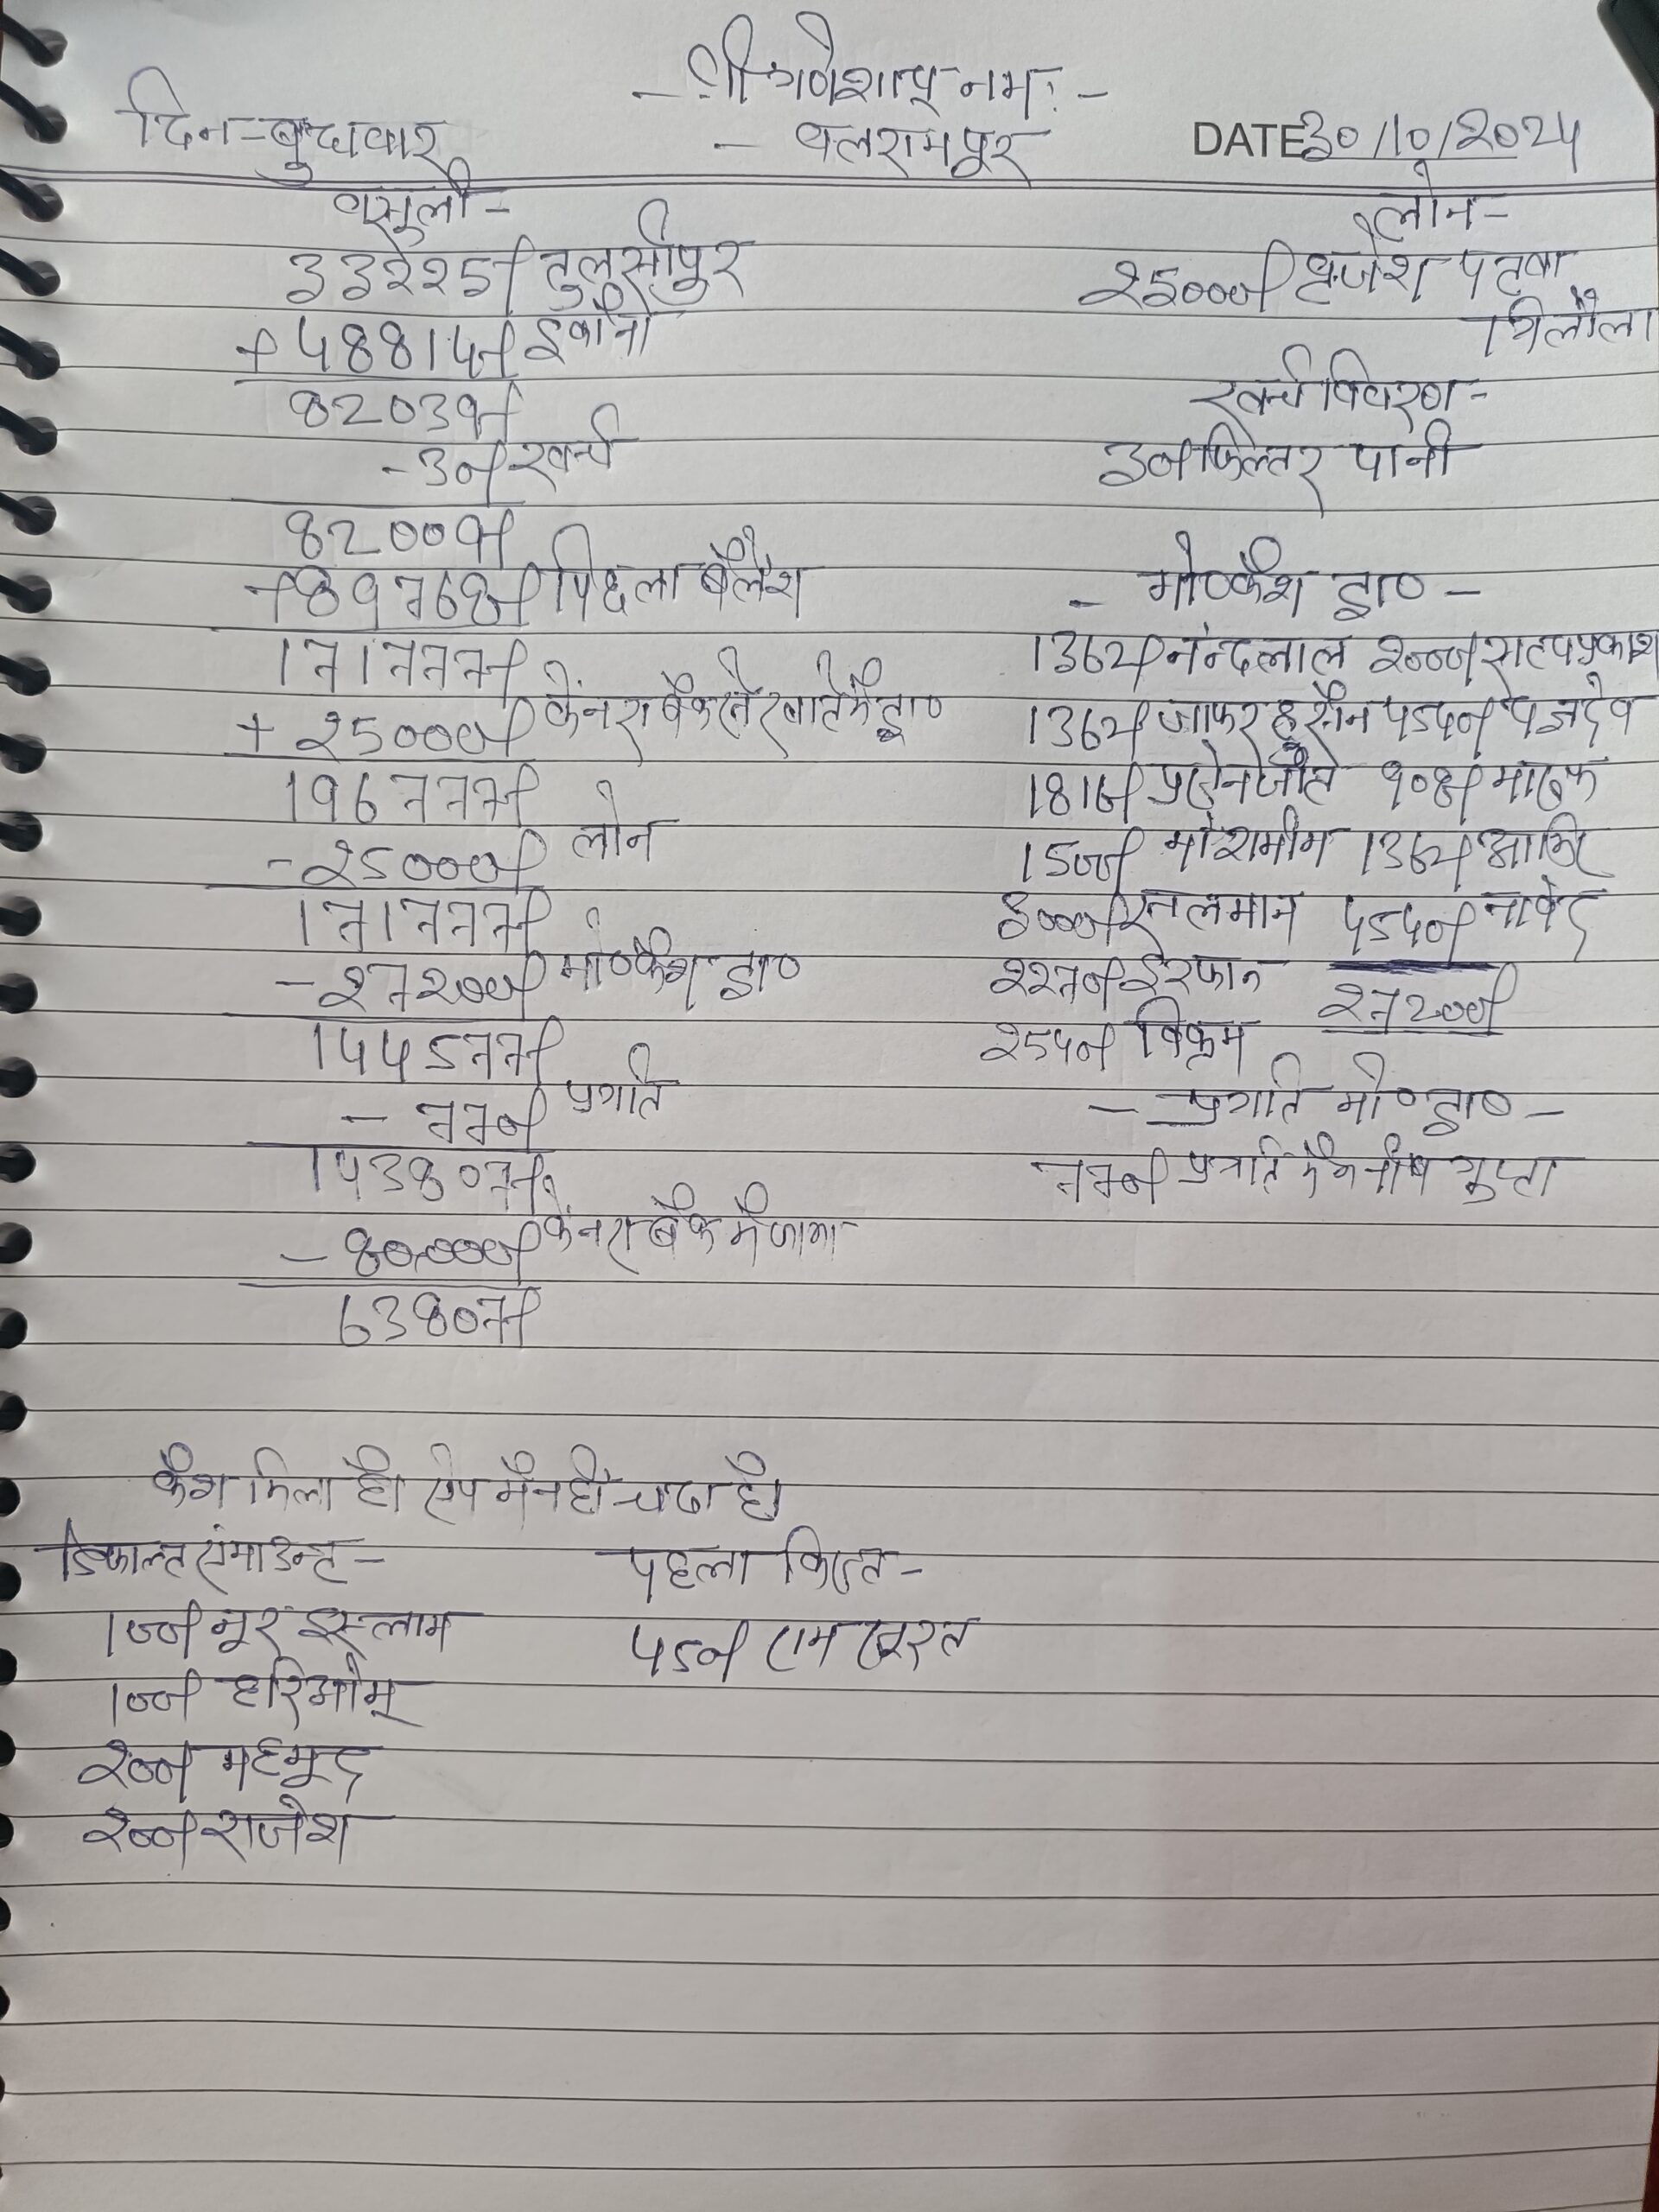 - श्री गणेशाय् नमः -
दिन-बुधवार - बलरामपुर DATE 30/10/2024
वसुली-
33225/ तुलसीपुर
+48814/ इकौना
82039/
-30/ खर्च
82009/
+89768/ पिछला बैलेंश
171777/
+25000/ केनरा बैंक खाते में ड्रा०
196777/
-25000/ लोन
171777/
-27200/ मो०कैश ड्रा०
144577/
-770/ प्रगति
143807/
-80,000/ केनरा बैंक में जमा
63807/
लोन-
25000/ बृजेश पटवा
गिलौला
खर्च विवरण-
30/ फिल्टर पानी
- मो०कैश ड्रा० -
1362/ नन्दलाल 2000/ सत्यप्रकाश
1362/ जाफर हुसैन 4540/
1816/ 908/
1500/ मो शमीम 1362/
3000/ सलमान 4540/ जावेद
2270/ इरफान 27200/
2540/ विक्रम
- प्रगति मो० ड्रा० -
770/ प्रगति गुप्ता
कैश मिला है। ऐप मे नही चढा है।
डिफाल्ट एमाउन्ट- पहला किस्त-
100/ नूर इस्लाम 450/ राम सूरत
100/ हरिओम्
200/ महमूद
200/ राजेश